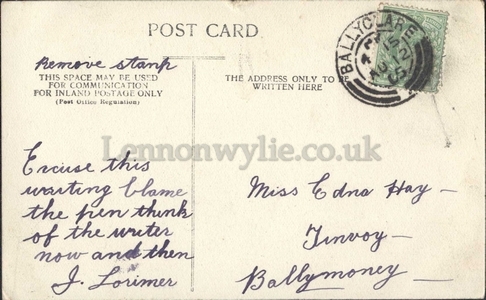 POST CARD
Remove stamp
THIS SPACE MAY BE USED
FOR COMMUNICATION
FOR INLAND POSTAGE ONLY
(Post Office Regulation)
THE ADDRESS ONLY TO BE
WRITTEN HERE
BALLYCLARE
Lennonwylie.co.uk
Excuse this
writing blame
the pen think
of the writer
now and then
J. Lorimer
Miss Edna Hay
Finvoy
Ballymoney